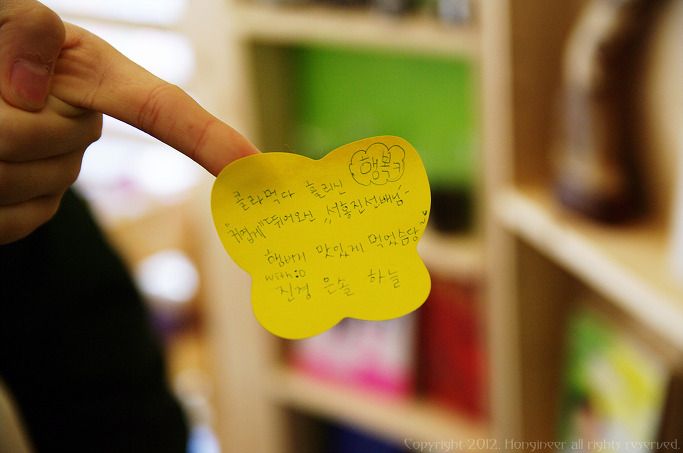 행복ㅋ
콜라먹다 흘리신
"귀엽게"뛰어오신 "서홍진선배님"
햄버거 맛있게 먹었습당~♥
with:D
진경 은솔 하늘
Copyright 2012. Hongineer all rights reserved.